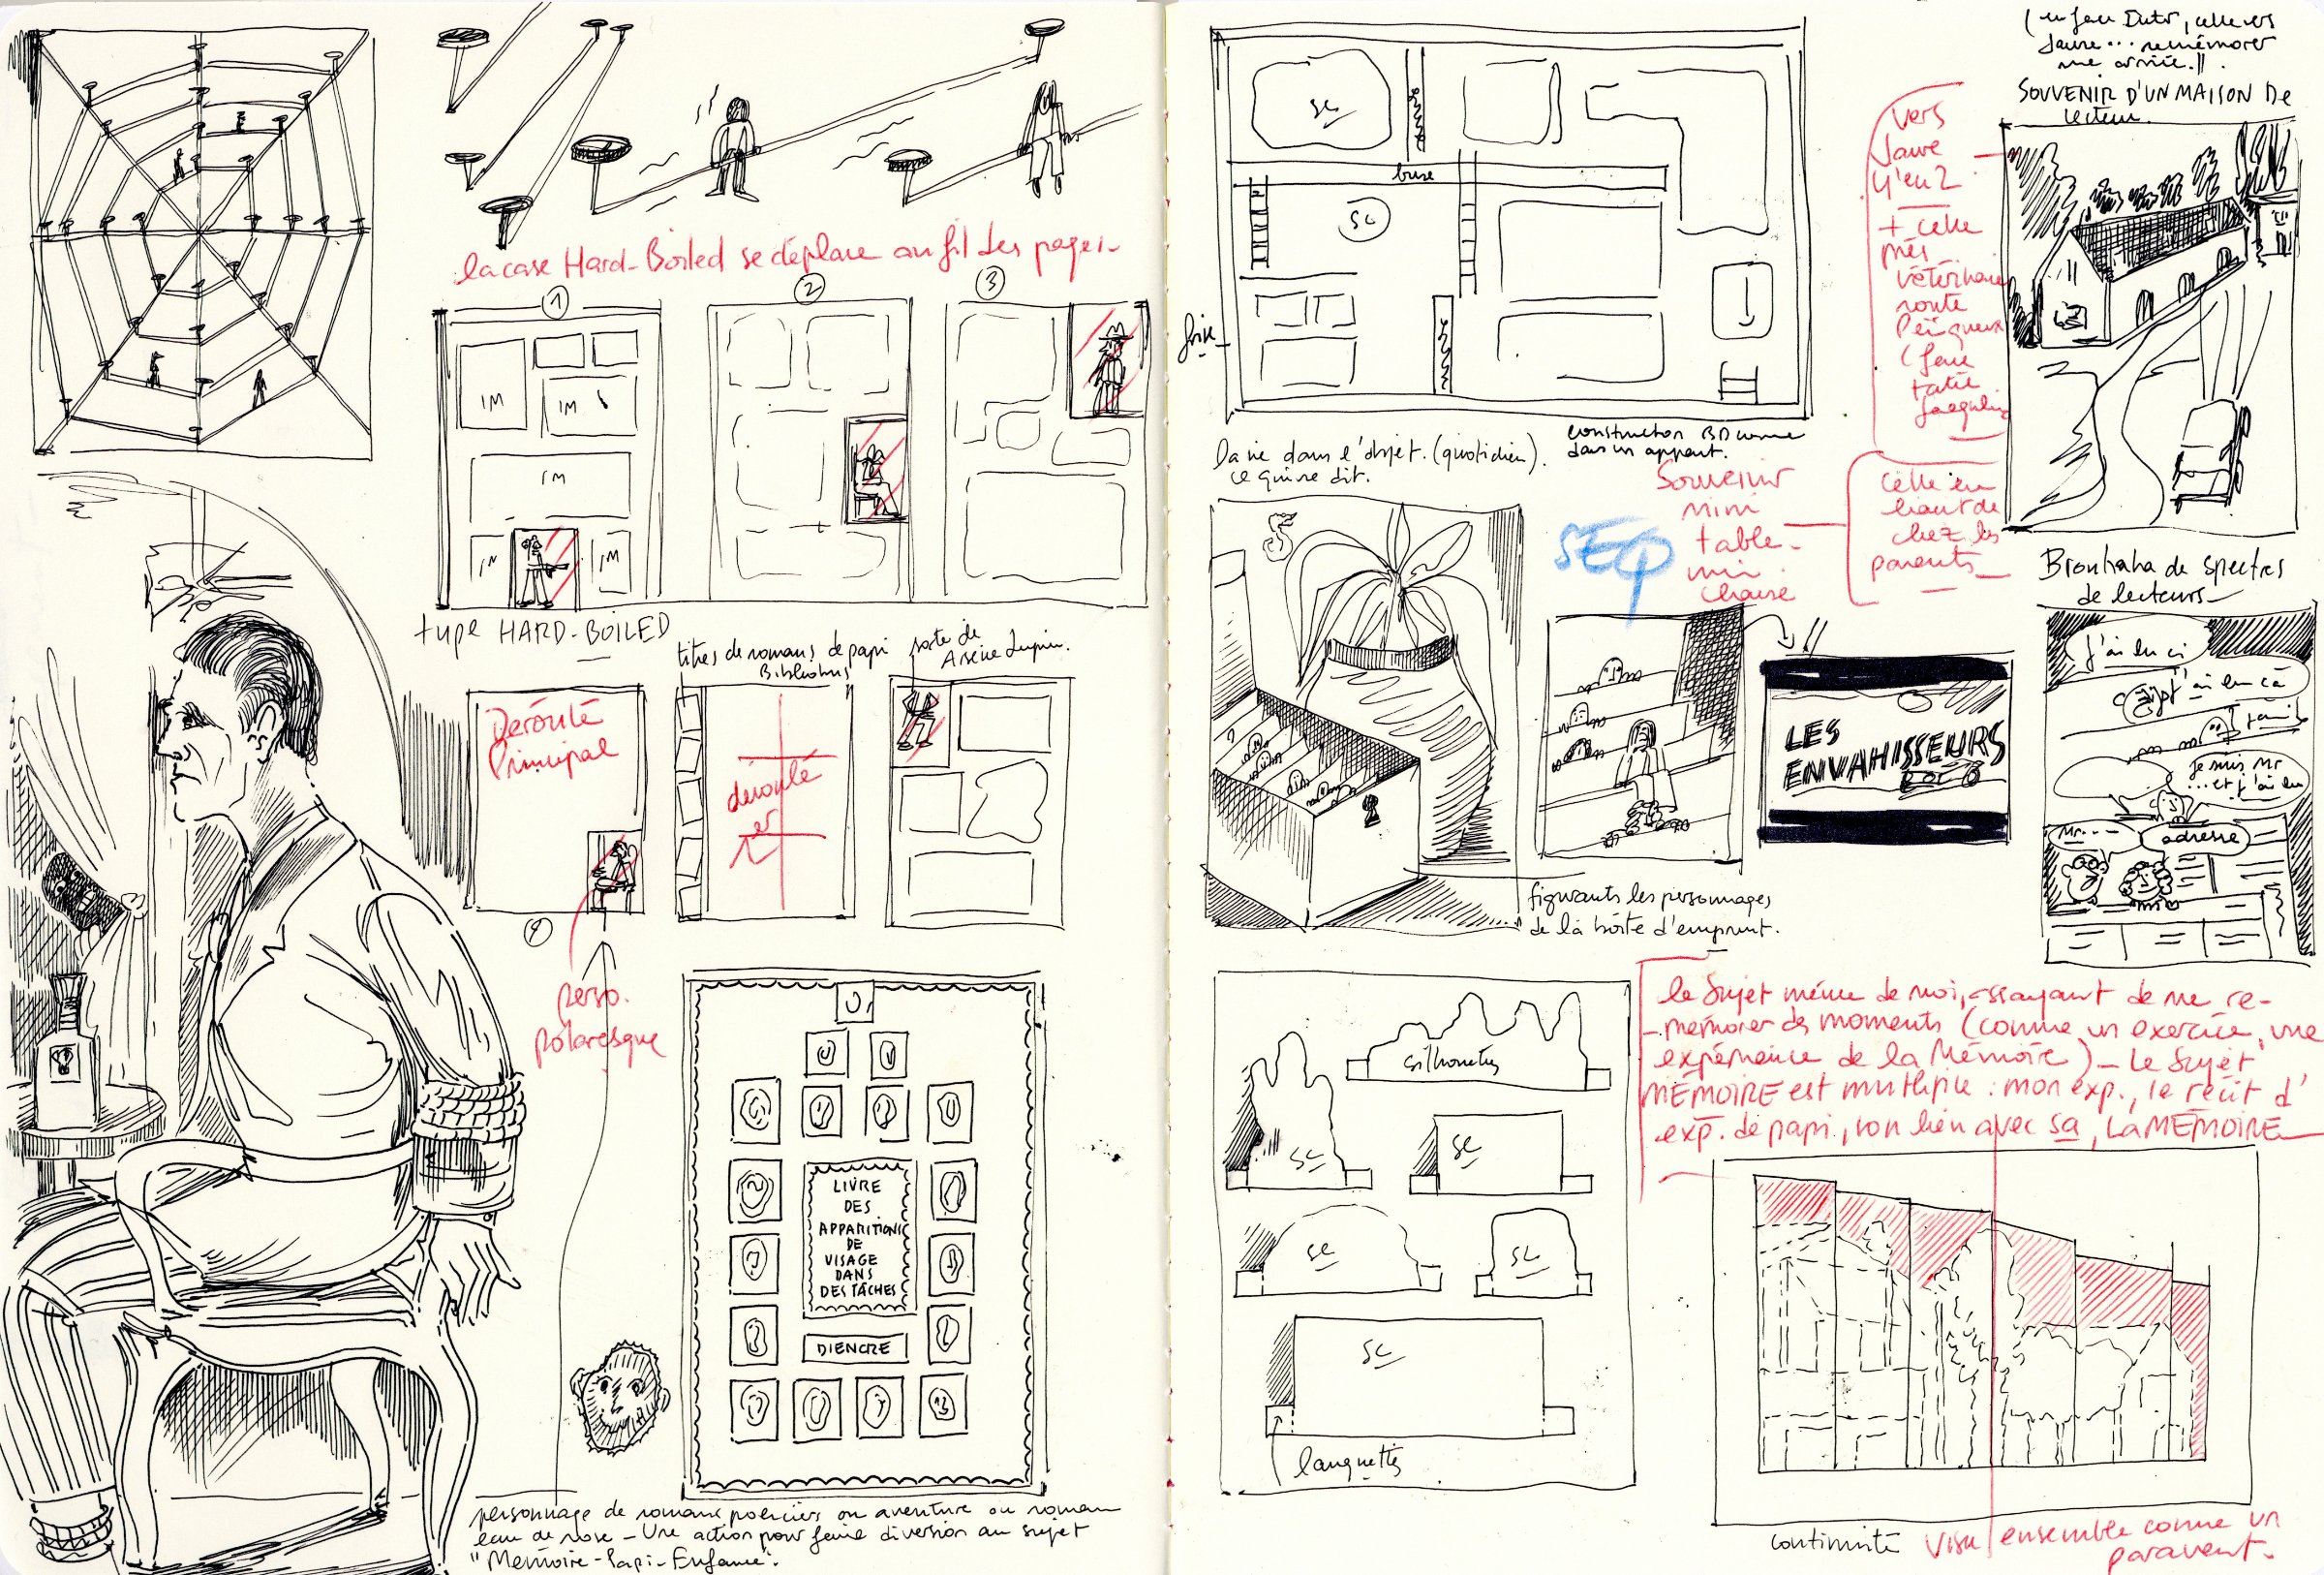 la case Hard-Boiled se déplace au fil des pages
1
2
3
IM
IM
IM
IM
IM
type HARD-BOILED
titres de romans de papi
Bibliobus
sorte de
Arsène Lupin.
Déroulé
Principal
déroulé
perso.
polaresque
LIVRE
DES
APPARITIONS
DE
VISAGE
DANS
DES TÂCHES
DIENCRE
personnage de romans policiers ou aventure ou roman
eau de rose - Une action pour faire diversion au sujet
"Mémoire-Papi-Enfance".
SC
SC
frise
la vie dans l'objet. (quotidien).
ce qui se dit.
construction BD comme
dans un appart.
SOUVENIR D'UN MAISON DE
lecteur.
vers
Javre
y'en 2
+ celle
près
vétérinaire
route
Périgueux
(face
tatie
Jacqueline
Souvenir
mini
table-
mini
chaise
celle en
haut de
chez les
parents
SEQ
LES
ENVAHISSEURS
figurants les personnages
de la boîte d'emprunt.
Brouhaha de spectres
de lecteurs
J'ai lu ci
j'ai lu çà
je suis Mr
...et j'ai lu
Mr...
adresse
le sujet même de moi, essayant de me re-
-mémorer des moments (comme un exercice, une
expérience de la Mémoire) - Le sujet
MÉMOIRE est multiple : mon exp., le récit d'
exp. de papi, son lien avec sa, LA MÉMOIRE
silhouettes
SC
SC
SC
SC
SC
languettes
continuité
visu ensemble comme un
paravent.